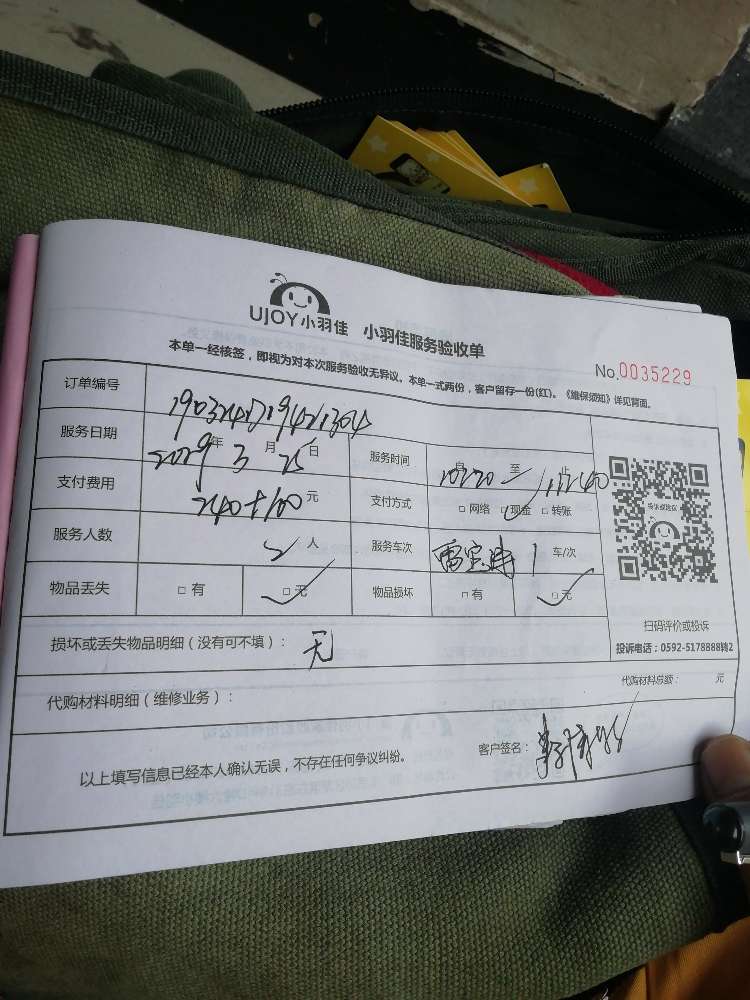 UJOY小羽佳 小羽佳服务验收单
本单一经核签，即视为对本次服务验收无异议。本单一式两份，客户留存一份(红)。《维保须知》详见背面。
No.0035229
订单编号
服务日期 年3月25日 服务时间 10:20 至 11:40 止
支付费用 240+100元 支付方式 □网络 □现金 □转账
服务人数 2人 服务车次 1 车/次
物品丢失 □有 □无 物品损坏 □有 □无
扫码评价或投诉
投诉电话：0592-5178888转2
损坏或丢失物品明细（没有可不填）：无
代购材料明细（维修业务）： 代购材料总额： 元
以上填写信息已经本人确认无误，不存在任何争议纠纷。 客户签名：